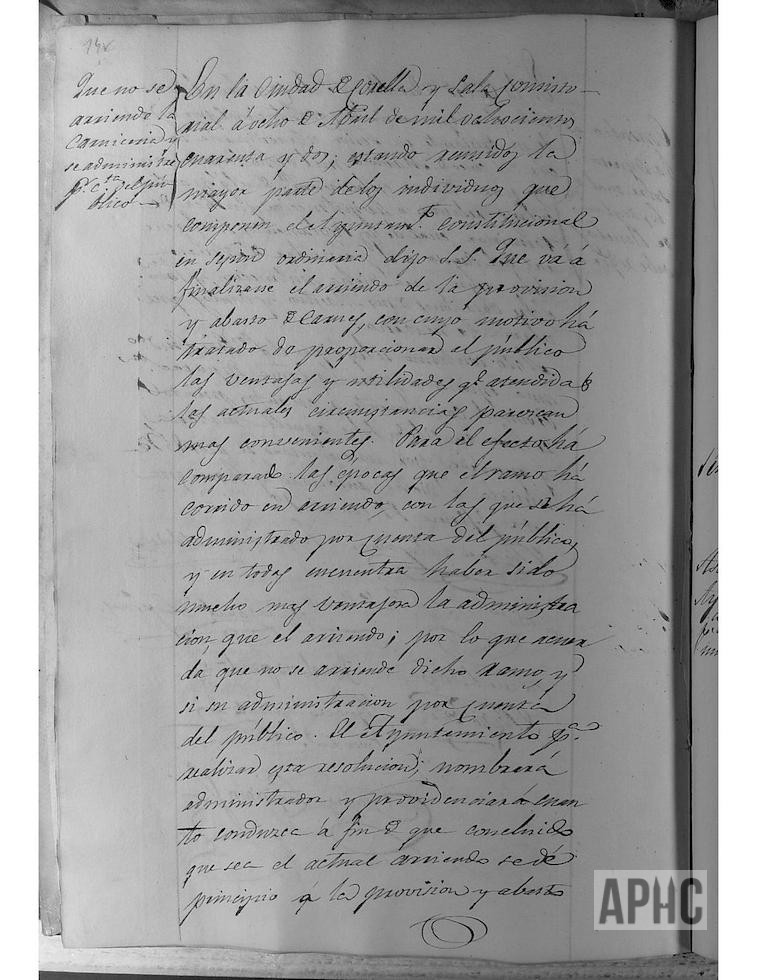 Que no se
arriende la
Carniceria y
se administre
pr. cta. del pú-
blico
En la Ciudad de Corella y Sala Consisto-
rial á ocho de Abril de mil ochocientos
cuarenta y dos; estando reunidos la
mayor parte de los individuos que
componen el Ayuntamto. constitucional
en sesion ordinaria dijo S.S. Que vá á
finalizarse el arriendo de la provision
y abasto de Carnes, con cuyo motivo há
tratado de proporcionar al público
las ventajas y utilidades qe. atendidas
las actuales circunstancias parezcan
mas convenientes. Para el efecto há
comparado las épocas que el ramo há
corrido en arriendo con las que se há
administrado por cuenta del público,
y en todas encuentra haber sido
mucho mas ventajosa la administra
cion, que el arriendo; por lo que acuer
da que no se arriende dicho ramo, y
si su administracion por cuenta
del público. El Ayuntamiento pa.
realizar esta resolucion, nombrará
administrador y providenciará cuan
to conduzca á fin de que concluido
que sea el actual arriendo se dé
principio á la provision y abasto
APHC